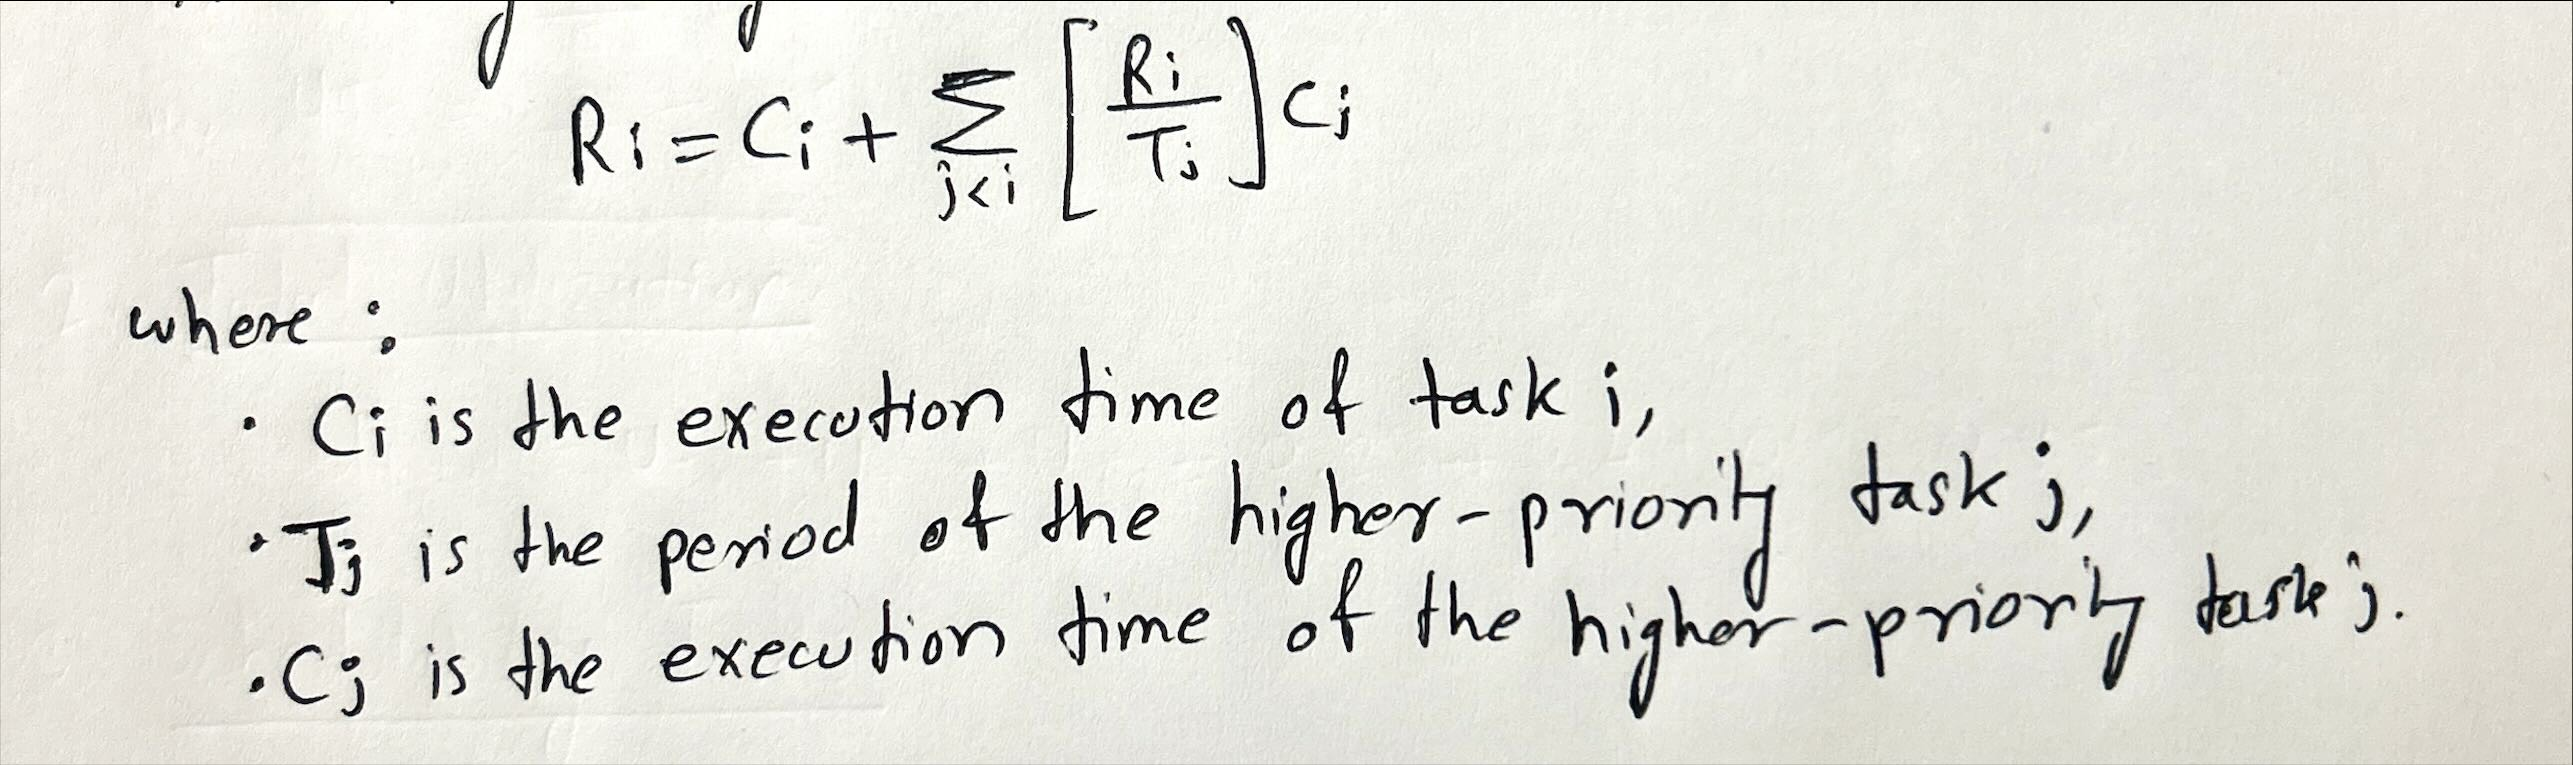 Ri = Ci + ∑ j<i [Ri/Tj] Cj
where :
· Ci is the execution time of task i,
· Tj is the period of the higher-priority task j,
· Cj is the execution time of the higher-priority task j.